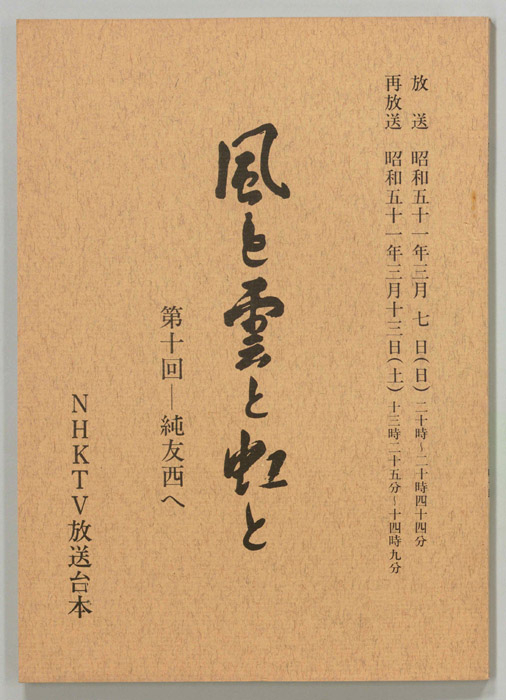 放送 昭和五十一年三月七日(日) 二十時~二十時四十四分
再放送 昭和五十一年三月十三日(土) 十三時二十五分~十四時九分
風と雲と虹と
第十回―純友西へ
NHKTV放送台本